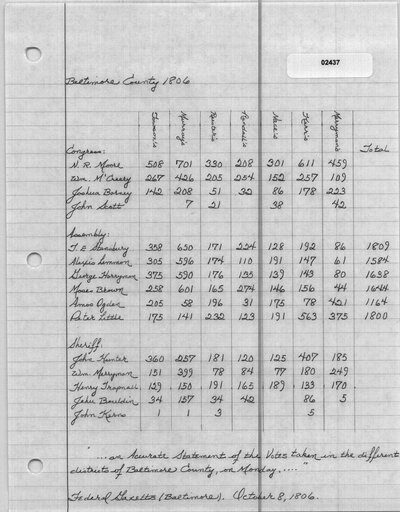 02437
Baltimore County 1806
Murray's Kerr's Merryman's
Congress: Total
N. R. Moore 508 701 330 208 301 611 459
Wm. McCreery 267 426 205 254 152 257 109
Joshua Barney 142 208 51 32 86 178 223
John Scott 7 21 38 42
Assembly:
T. E Stansbury 358 650 171 224 128 192 86 1809
Alexis Lemmon 305 596 174 110 191 147 61 1584
George Harryman 375 590 176 135 139 143 80 1638
Moses Brown 258 601 165 274 146 156 44 1644
Amos Ogden 205 58 196 31 175 78 421 1164
Peter Little 175 141 232 123 191 563 375 1800
Sheriff:
John Hunter 360 257 181 120 125 407 185
Wm. Merryman 131 399 78 84 77 180 249
Henry Trapnall 129 150 191 165 189 133 170
Jehu Bouldin 34 157 34 42 86 5
John Kerns 1 1 3 5
"... an Accurate Statement of the Votes taken in the different
districts of Baltimore County, on Monday, ...."
Federal Gazette (Baltimore). October 8, 1806.